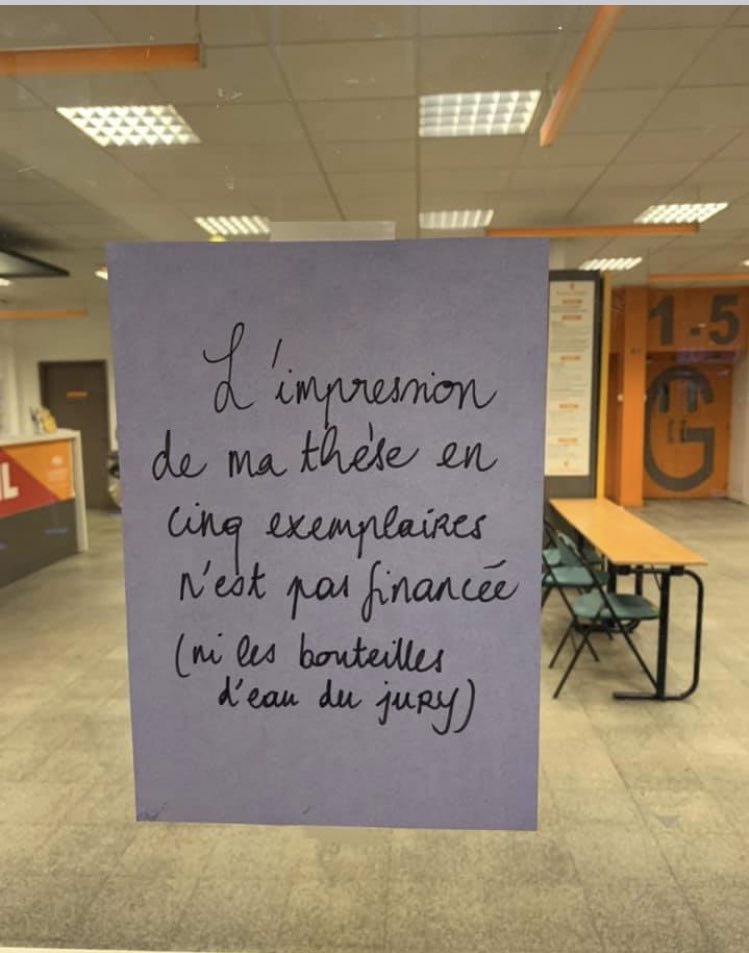 L'impression
de ma thèse en
cinq exemplaires
n'est pas financée
(ni les bouteilles
d'eau du jury)
1-5
G
L